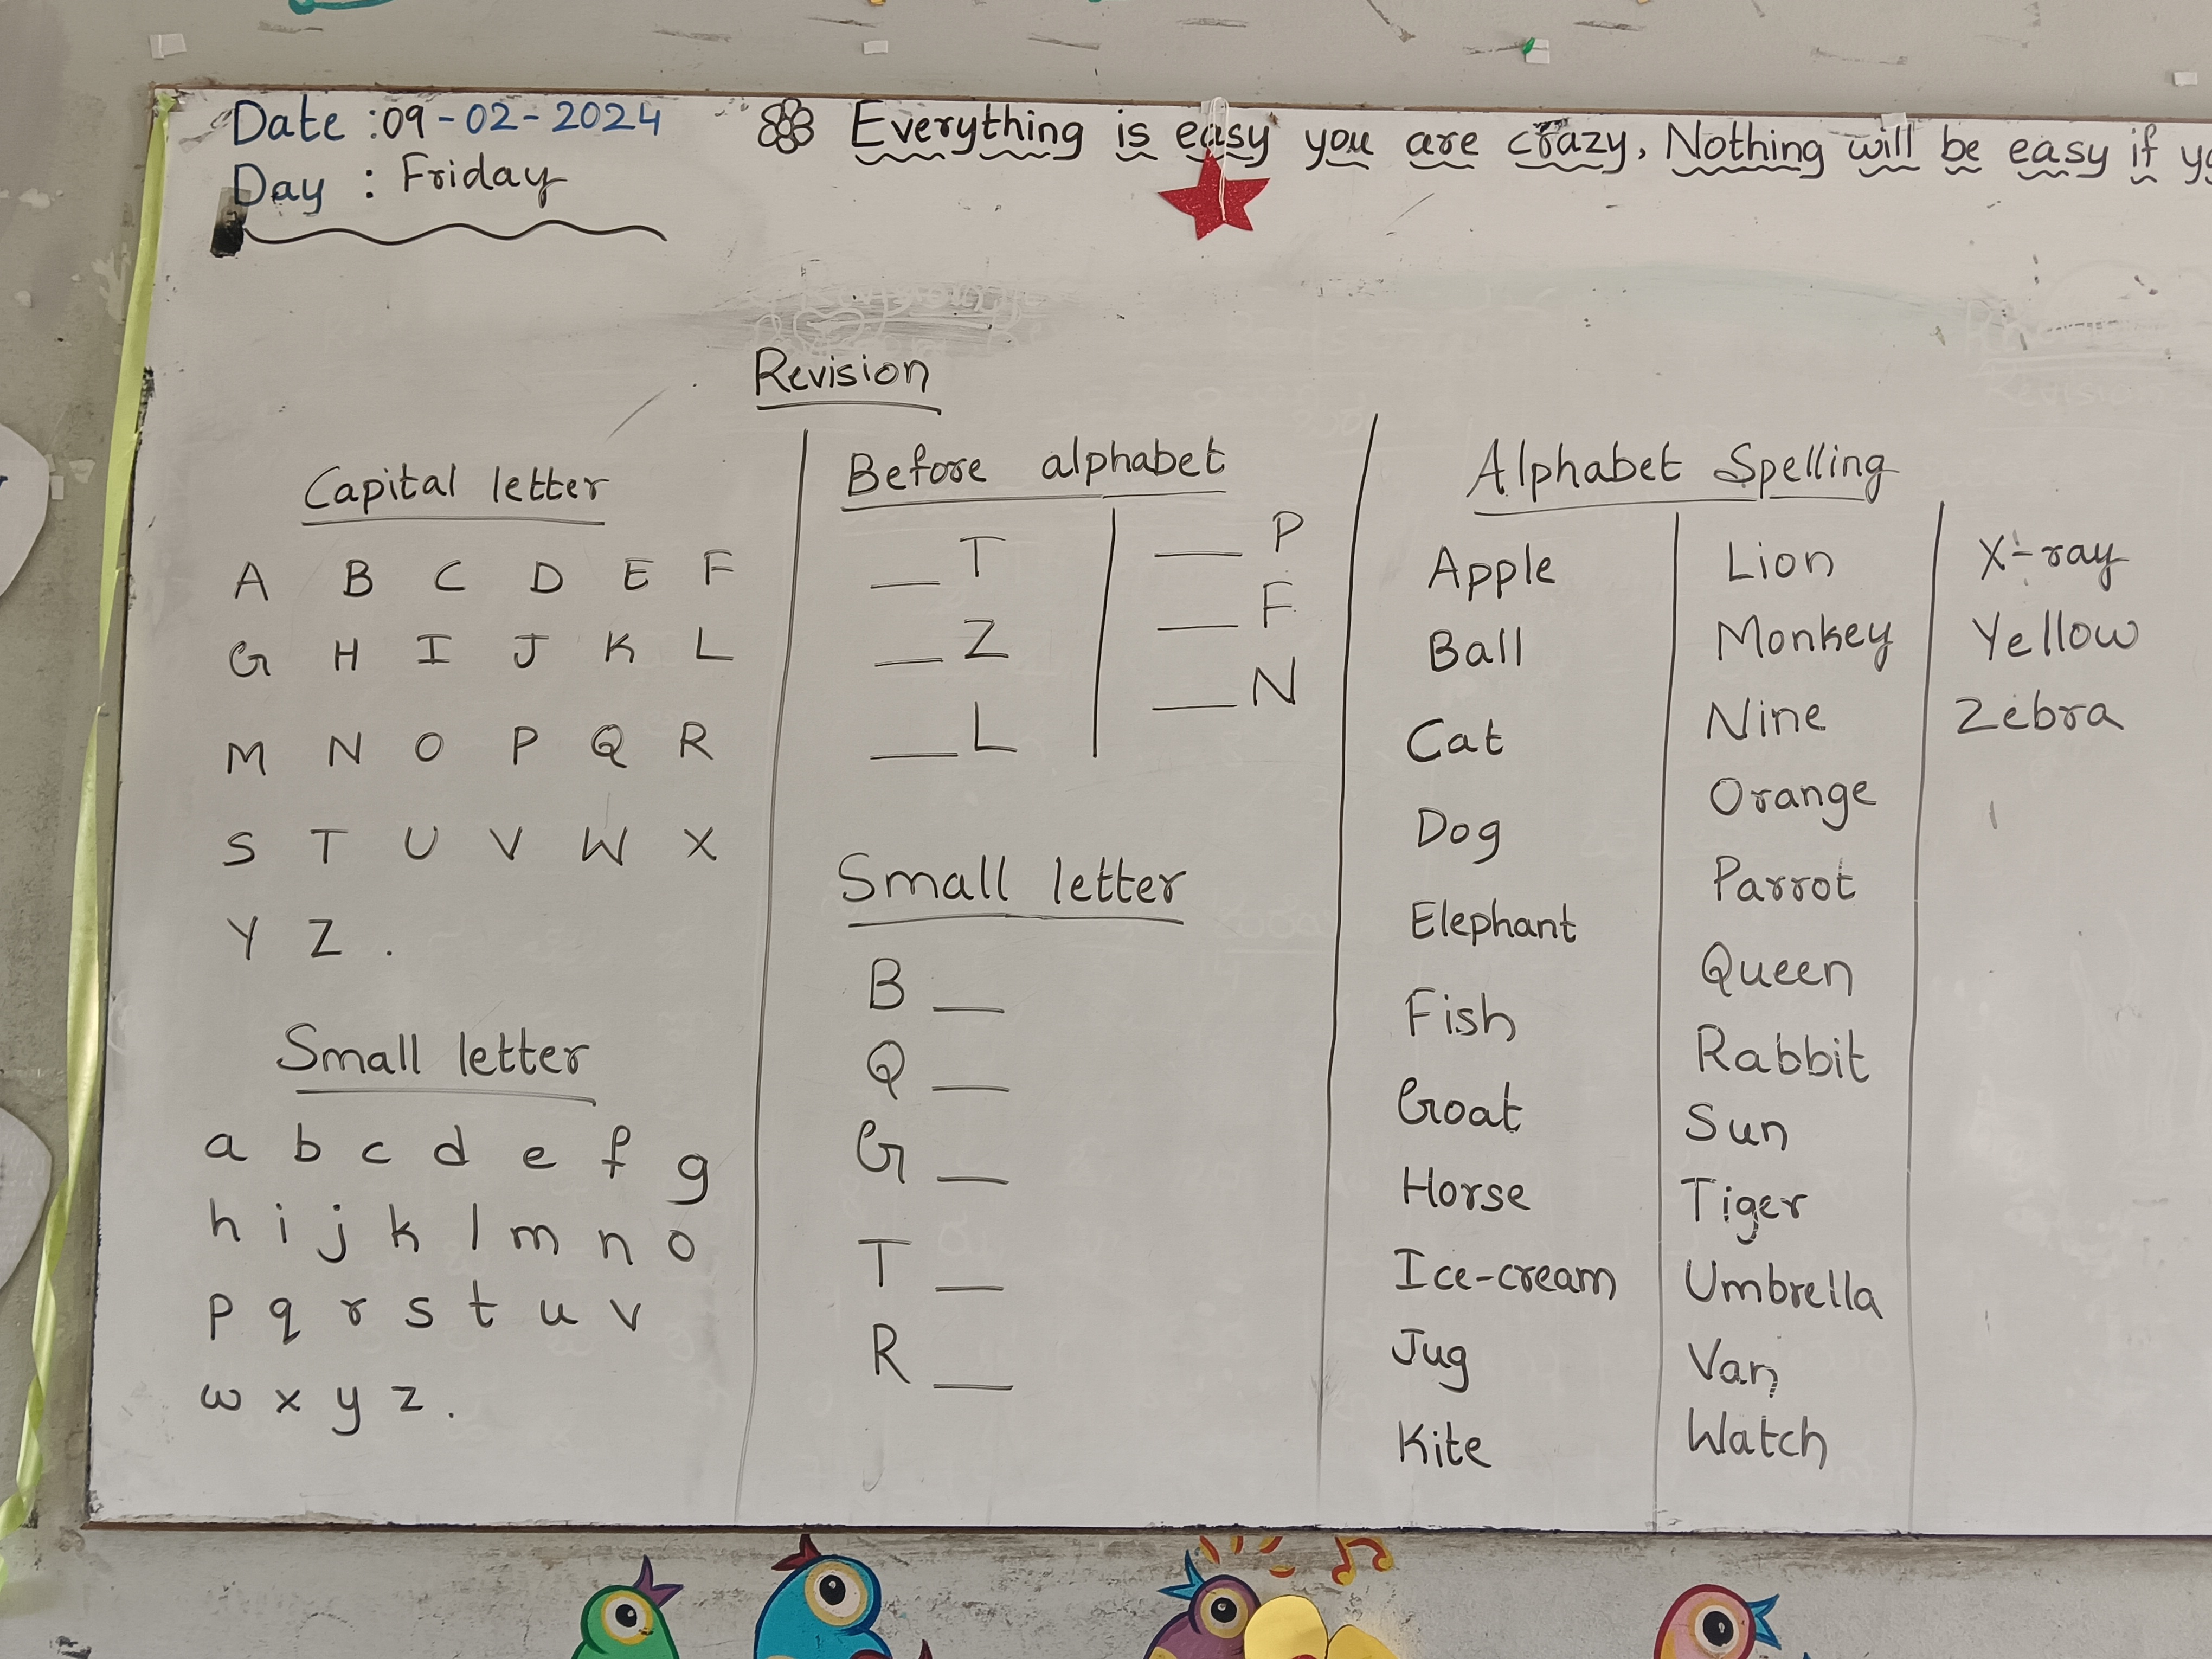 Date : 09-02-2024
Day : Friday
Everything is easy you are crazy, Nothing will be easy if
Revision
Capital letter
A B C D E F
G H I J K L
M N O P Q R
S T U V W X
Y Z .
Small letter
a b c d e f g
h i j k l m n o
p q r s t u v
w x y z .
Before alphabet
__ T
__ Z
__ L
__ P
__ F
__ N
Small letter
B __
Q __
G __
T __
R __
Alphabet Spelling
Apple
Ball
Cat
Dog
Elephant
Fish
Goat
Horse
Ice-cream
Jug
Kite
Lion
Monkey
Nine
Orange
Parrot
Queen
Rabbit
Sun
Tiger
Umbrella
Van
Watch
X-ray
Yellow
Zebra